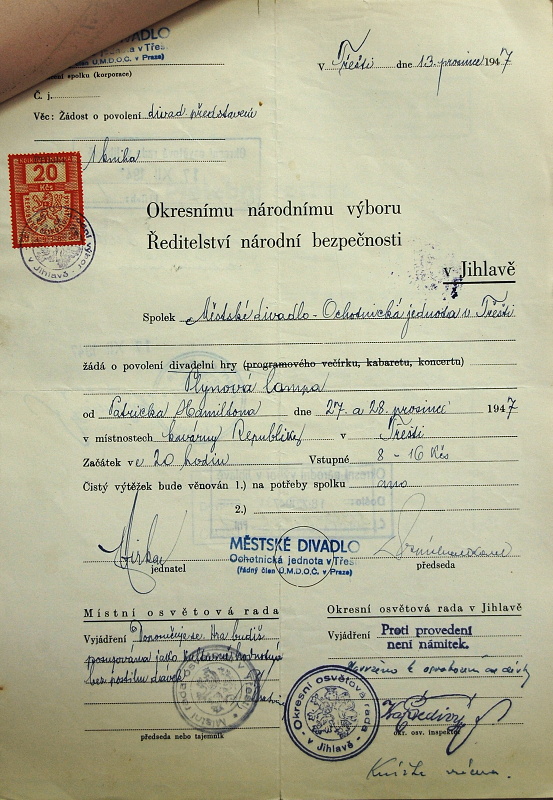 DIVADLO
jednota v Třešti
člen Ú.M.D.O.Č. v Praze)
spolku (korporace)
v Třešti dne 13. prosince 1947
Č. j.
Věc: Žádost o povolení divad. představení
1 kniha
20
Kčs
v Jihlavě
Okresnímu národnímu výboru
Ředitelství národní bezpečnosti
v Jihlavě
Spolek Městské divadlo - Ochotnická jednota v Třešti
žádá o povolení divadelní hry (programového večírku, kabaretu, koncertu)
Plynová lampa
od Patricka Hamiltona dne 27. a 28. prosinci 1947
v místnostech kavárny Republiky v Třešti
Začátek ve 20 hodin Vstupné 8 - 16 Kčs
Čistý výtěžek bude věnován 1.) na potřeby spolku ano
2.)
MĚSTSKÉ DIVADLO
Ochotnická jednota v Třešti
(řádný člen Ú.M.D.O.Č. v Praze)
jednatel předseda
Místní osvětová rada
Vyjádření Doporučuje se. Hra budiž
posuzována jako kulturně hodnotná
bez postihu dávek
Místní osvětová rada
předseda nebo tajemník
Okresní osvětová rada v Jihlavě
Vyjádření Proti provedení
není námitek.
Okresní osvětová rada
v Jihlavě
okr. osv. inspektor